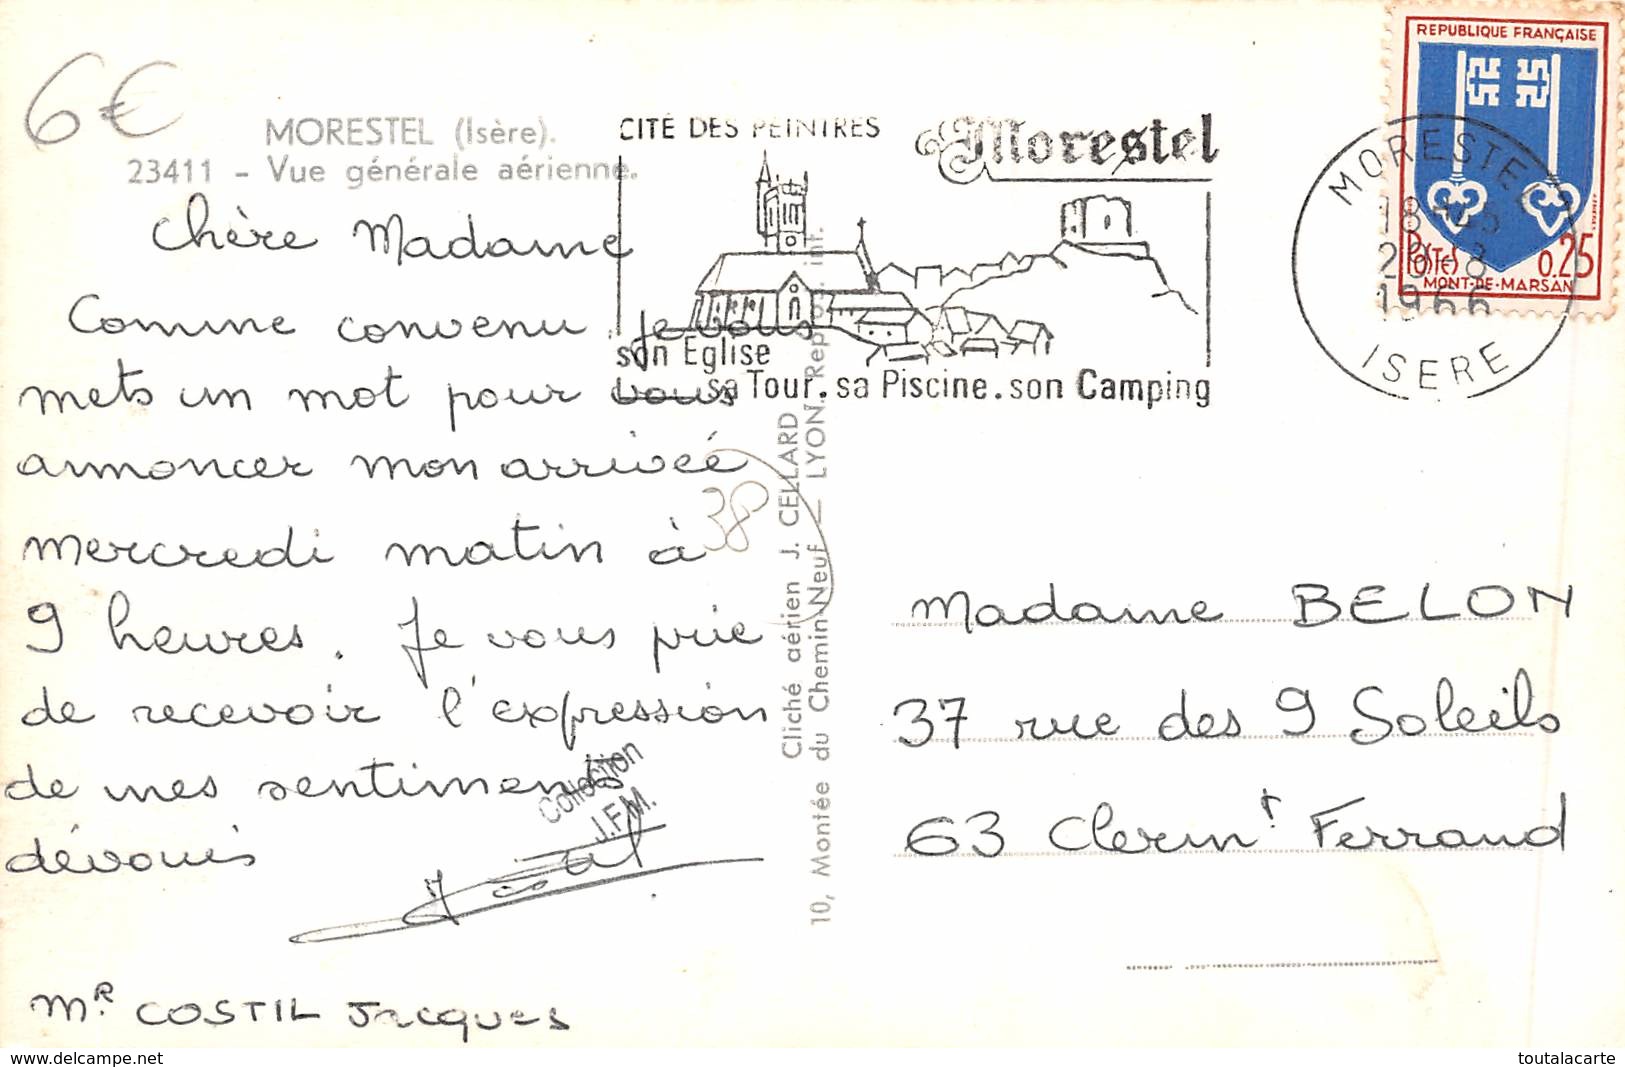 6€
MORESTEL (Isère).
23411 - Vue générale aérienne.
CITÉ DES PEINTRES
Morestel
son Eglise
sa Tour. sa Piscine. son Camping
MORESTEL
18 45
1966
ISERE
REPUBLIQUE FRANÇAISE
POSTES 0.25
MONT-DE-MARSAN
Chère Madame
Comme convenu je vous
mets un mot pour vous
annoncer mon arrivée
mercredi matin à
9 heures. Je vous prie
de recevoir l'expression
de mes sentiments
dévoués
38
Collection
J.F.M.
Mr. COSTIL Jacques
Cliché aérien J. CELLARD
10, Montée du Chemin-Neuf - LYON. Reprod. int.
Madame BELON
37 rue des 9 Soleils
63 Clermt Ferrand
www.delcampe.net
toutalacarte